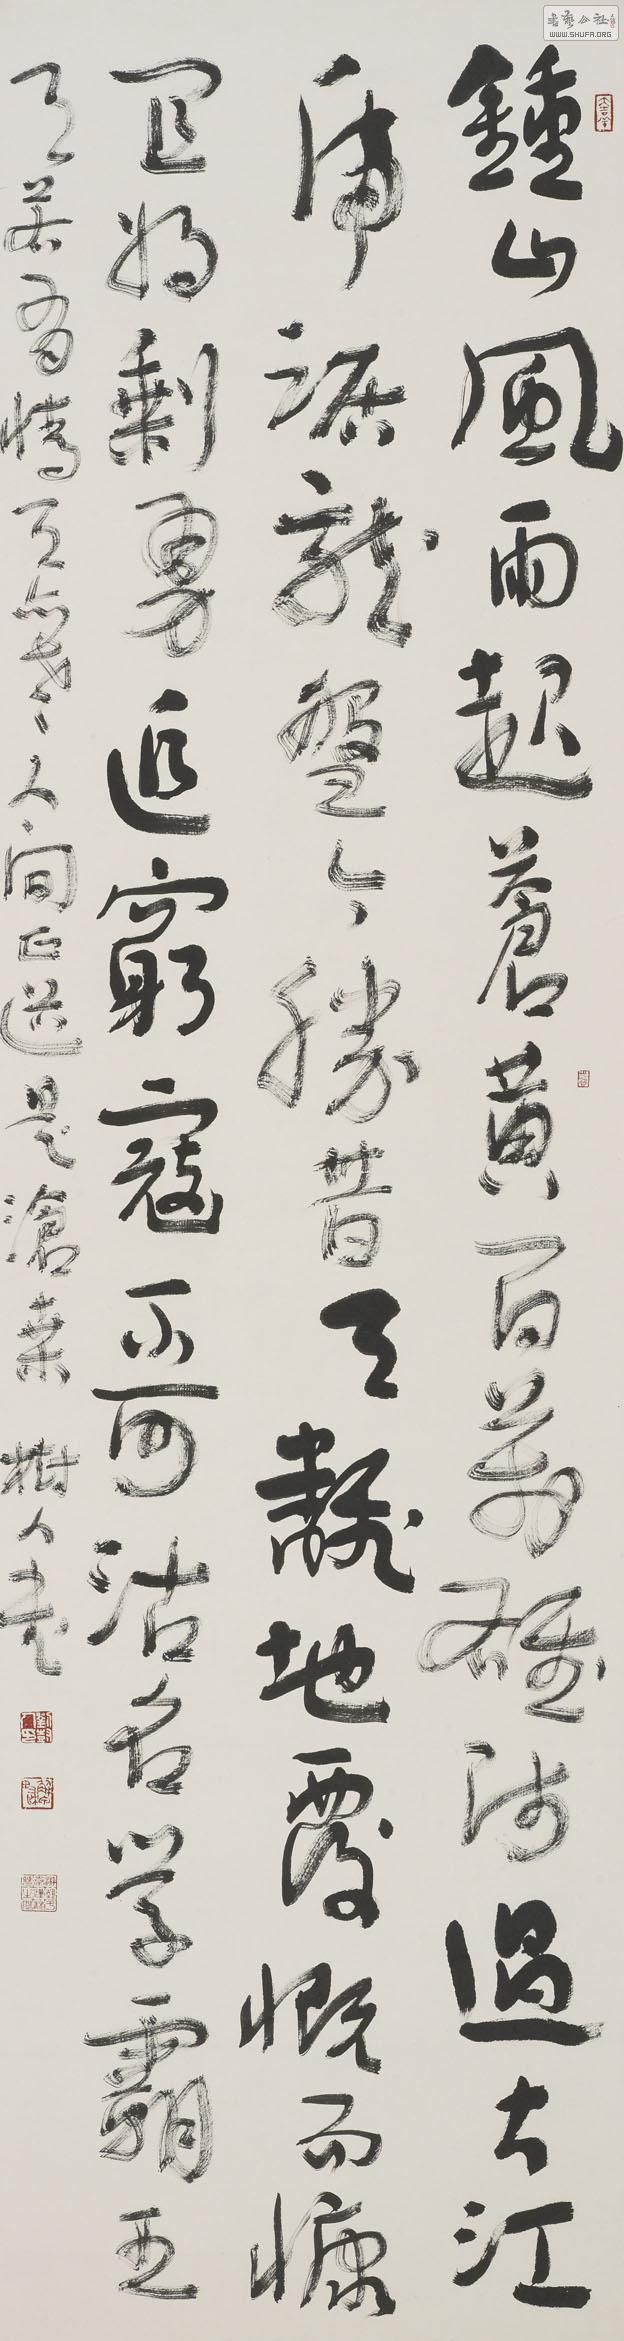 書藝公社
WWW.SHUFA.ORG
鍾山風雨起蒼黃百萬雄師過大江
虎踞龍盤今勝昔天翻地覆慨而慷
宜將剩勇追窮寇不可沽名學霸王
天若有情天亦老人間正道是滄桑 樹人書